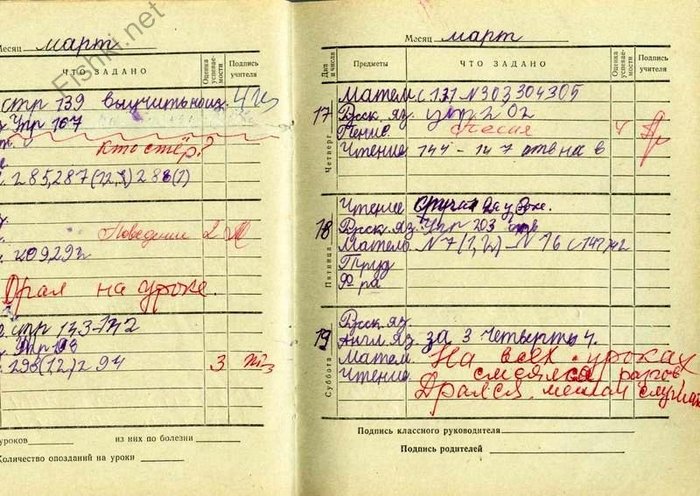 Месяц март
ЧТО ЗАДАНО
Оценка успеваемости
Подпись учителя
стр 139 выучить наиз.
Упр 167
Кто стёр?
285,287(1
Поведение 2
Орал на уроке.
стр 143-142
298(12)294
3
уроков
из них по болезни
Количество опозданий на уроки
Fishki.net
Месяц март
Дни и числа
Предметы
ЧТО ЗАДАНО
Оценка успеваемости
Подпись учителя
17
Четверг
Матем с 131 N303,304305
Русск. яз. упр 202
Пение Песня 4
Чтение 144 - 147 отв на в
18
Пятница
Чтение
Русск. яз. Упр 203
Матем N7(1,2) - N16
Труд
Ф ра
19
Суббота
Русск яз.
Англ. яз. за 3 четверть 4.
Матем. На всех уроках
Чтение смеялся
Дрался, мешал
Подпись классного руководителя
Подпись родителей